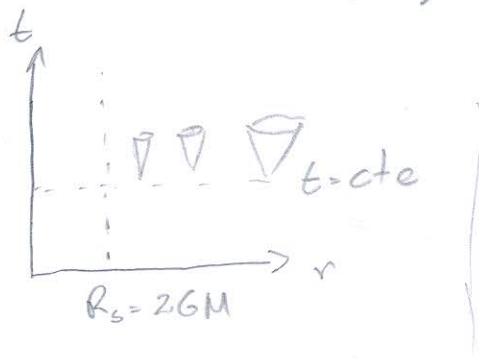 t
t=cte
r
R_s = 2GM